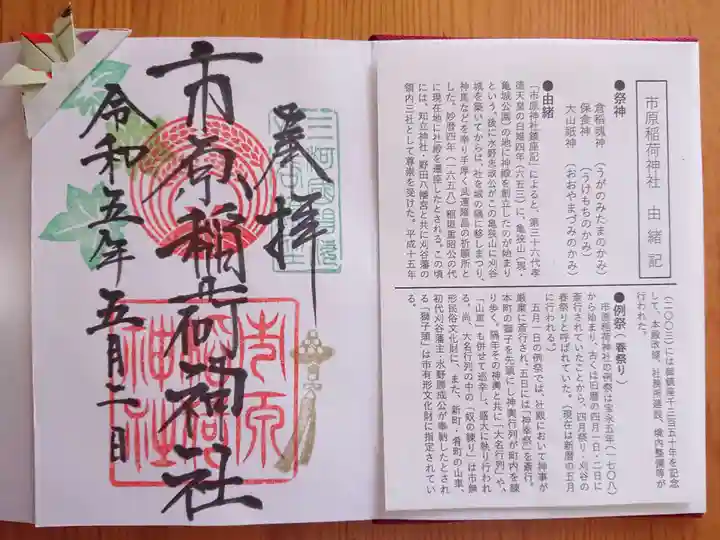 奉拝
市原稲荷神社
令和五年五月二日
市原
稲荷
神社
市原稲荷神社 由緒記
●祭神
倉稲魂神(うがのみたまのかみ)
保食神(うけもちのかみ)
大山祇神(おおやまづみのかみ)
●由緒
「市原神社鎮座記」によると、第三十六代孝
徳天皇の白雉四年(六五三)に、亀狭山(現・
亀城公園)の地に神殿を創立したのが始まり
という。後に水野忠政公がこの亀狭山に刈谷
城を築いてからは、社を城の隣に移しまつり、
神馬などを奉り手厚く武運隆昌の祈願所と
した。妙暦四年(一六五八)稲垣重昭公の代
に現在地に社殿を遷座したとされる。この頃
には、知立神社・野田八幡宮と共に刈谷藩の
領内三社として尊崇を受けた。平成十五年
(二〇〇三)には御鎮座千三百五十年を記念
して、本殿改修、社務所建設、境内整備等が
行われた。
●例祭(春祭り)
市原稲荷神社の例祭は宝永五年(一七〇八)
から始まり、古くは旧暦の四月一日・二日に
斎行されていたことから、四月祭り・刈谷の
春祭りと呼ばれていた。(現在は新暦の五月
に行われる。)
五月一日の例祭では、社殿において神事が
厳粛に斎行され、五日には「神幸祭」を斎行。
本町の獅子を先頭にし神輿行列が町内を練
り歩く。隔年その神輿と共に「大名行列」や、
「山車」も併せて巡幸し、盛大に執り行われ
る。尚、大名行列の中の「奴の練り」は市無
形民俗文化財に、また、新町・肴町の山車、
初代刈谷藩主・水野勝成公が奉納したとされ
る「獅子頭」は市有形文化財に指定されてい
る。